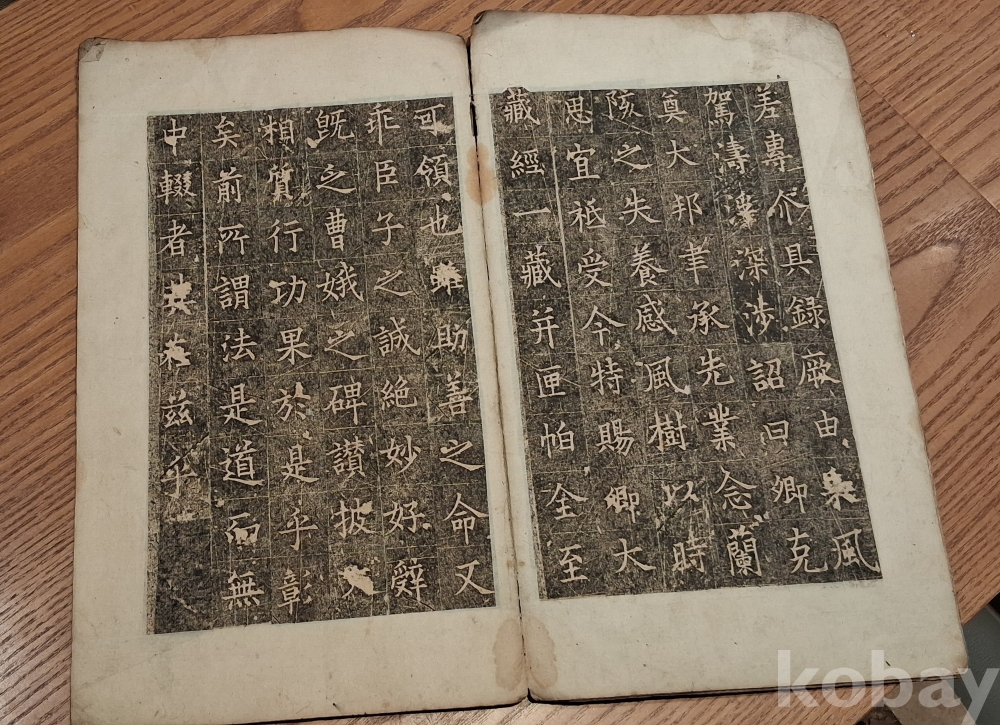 差專介具錄厥由風
駕濤深涉詔曰卿克
奠大邦聿承先業念蘭
陔之失養感風樹以時
思宜祗受今特賜卿大
藏經一藏并匣帕全至
可領也雖助善之命又
乖臣子之誠絕妙好辭
既乏曹娥之碑讚披文
相質行功果於是乎彰
矣前所謂法是道而無
中輟者其在茲乎
kobay